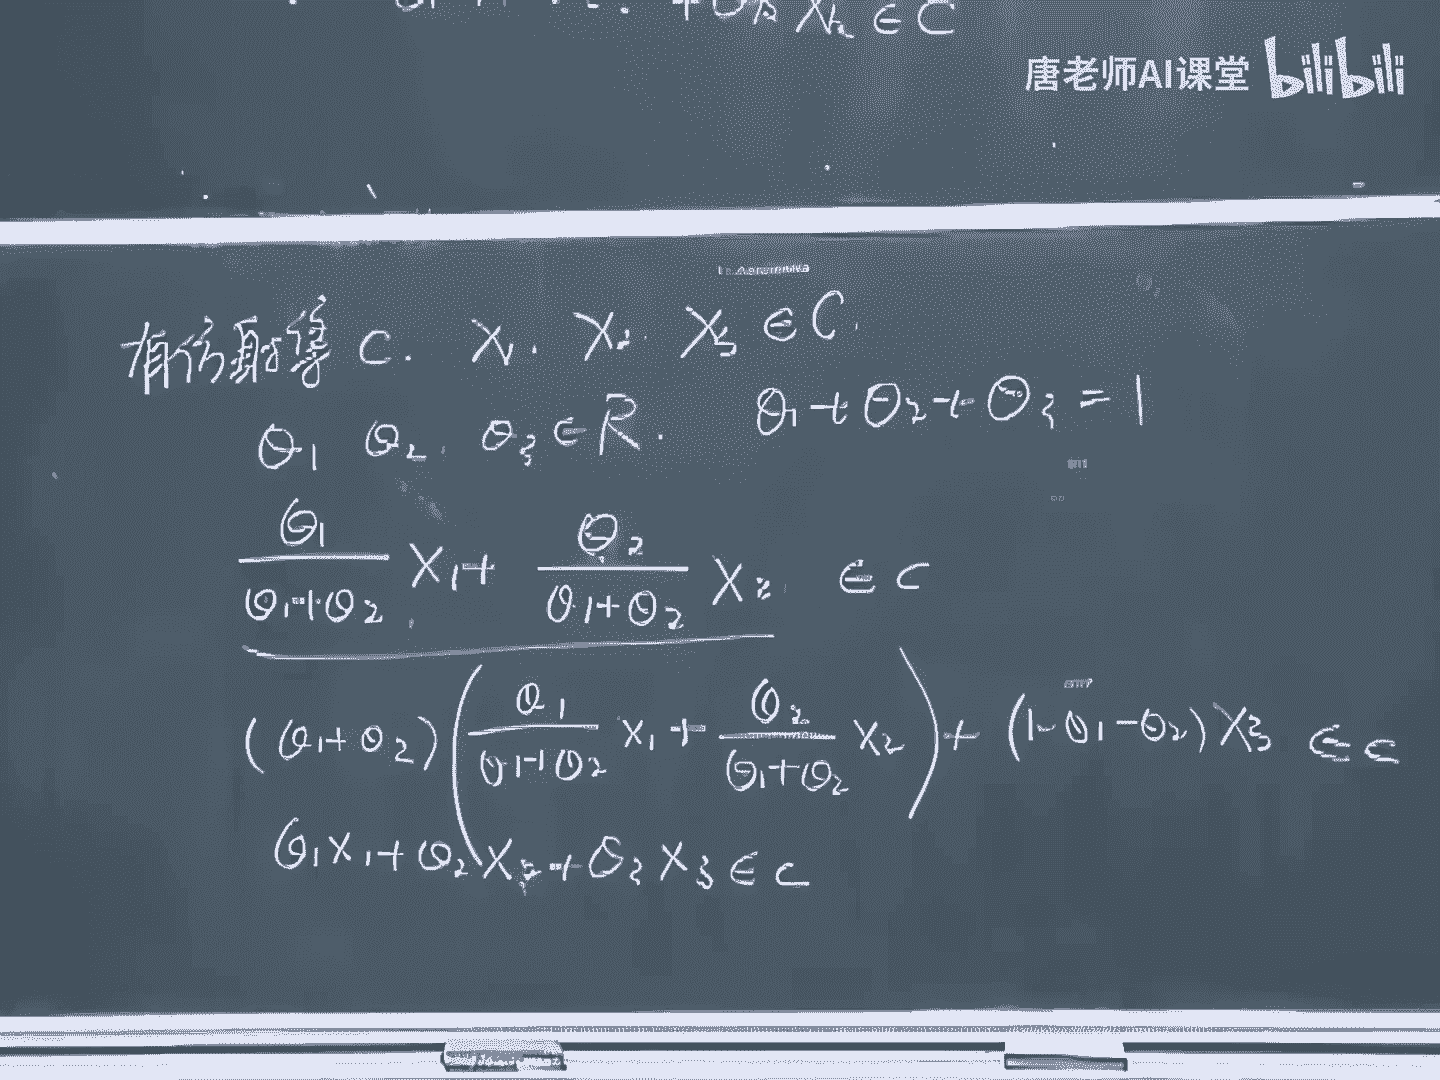 X₂ ∈ C
唐老师AI课堂 bilibili
有仿射集 C. X₁. X₂. X₃ ∈ C.
θ₁ θ₂. θ₃ ∈ R. θ₁ + θ₂ + θ₃ = 1
θ₁/(θ₁+θ₂) X₁ + θ₂/(θ₁+θ₂) X₂ ∈ C
(θ₁+θ₂)(θ₁/(θ₁+θ₂) X₁ + θ₂/(θ₁+θ₂) X₂) + (1-θ₁-θ₂)X₃ ∈ C
θ₁X₁ + θ₂X₂ + θ₃X₃ ∈ C